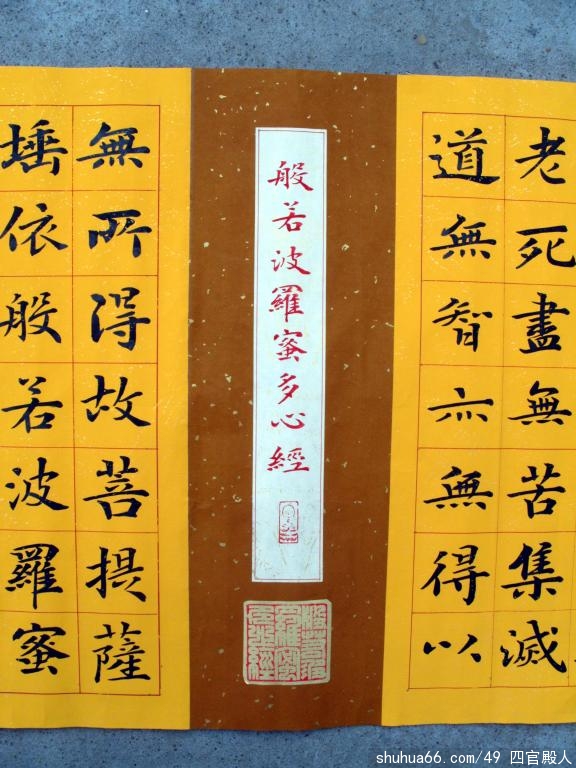 老死盡無苦集滅
道無智亦無得以
般若波羅蜜多心經
般若波羅蜜多心經
無所得故菩提薩
埵依般若波羅蜜
shuhua66.com/49 四官殿人